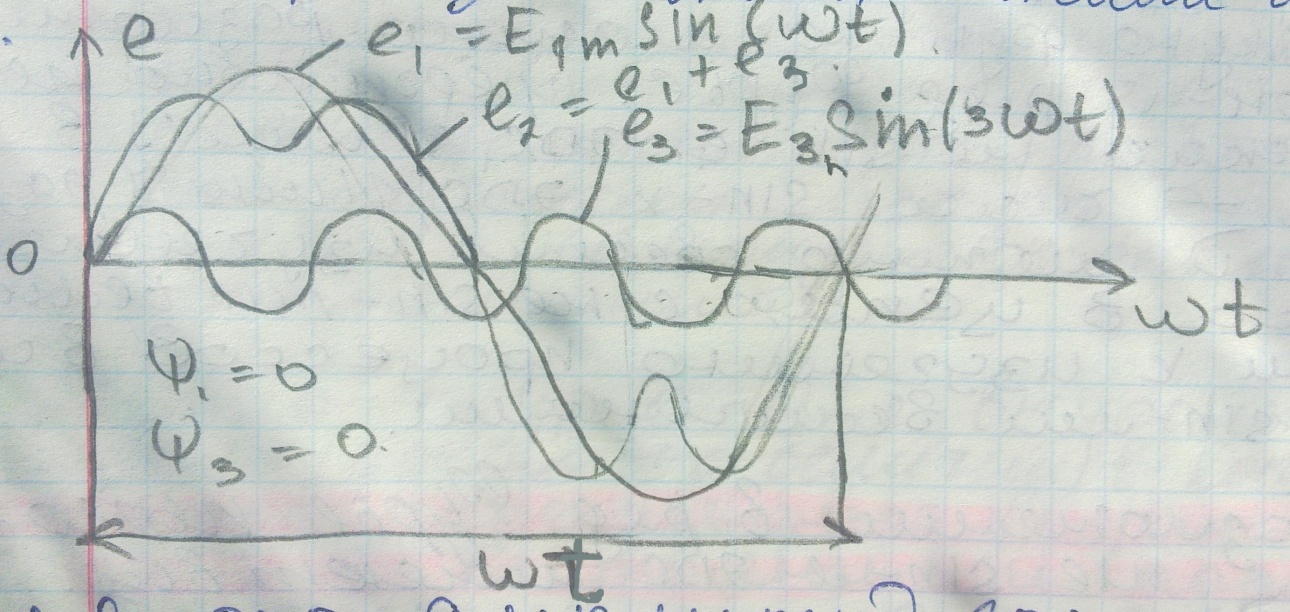 e
e₁ = E₁m sin(ωt).
e₂ = e₁ + e₃.
e₃ = E₃m Sin(3ωt)
0
ωt
Ψ₁ = 0
Ψ₃ = 0.
ωt